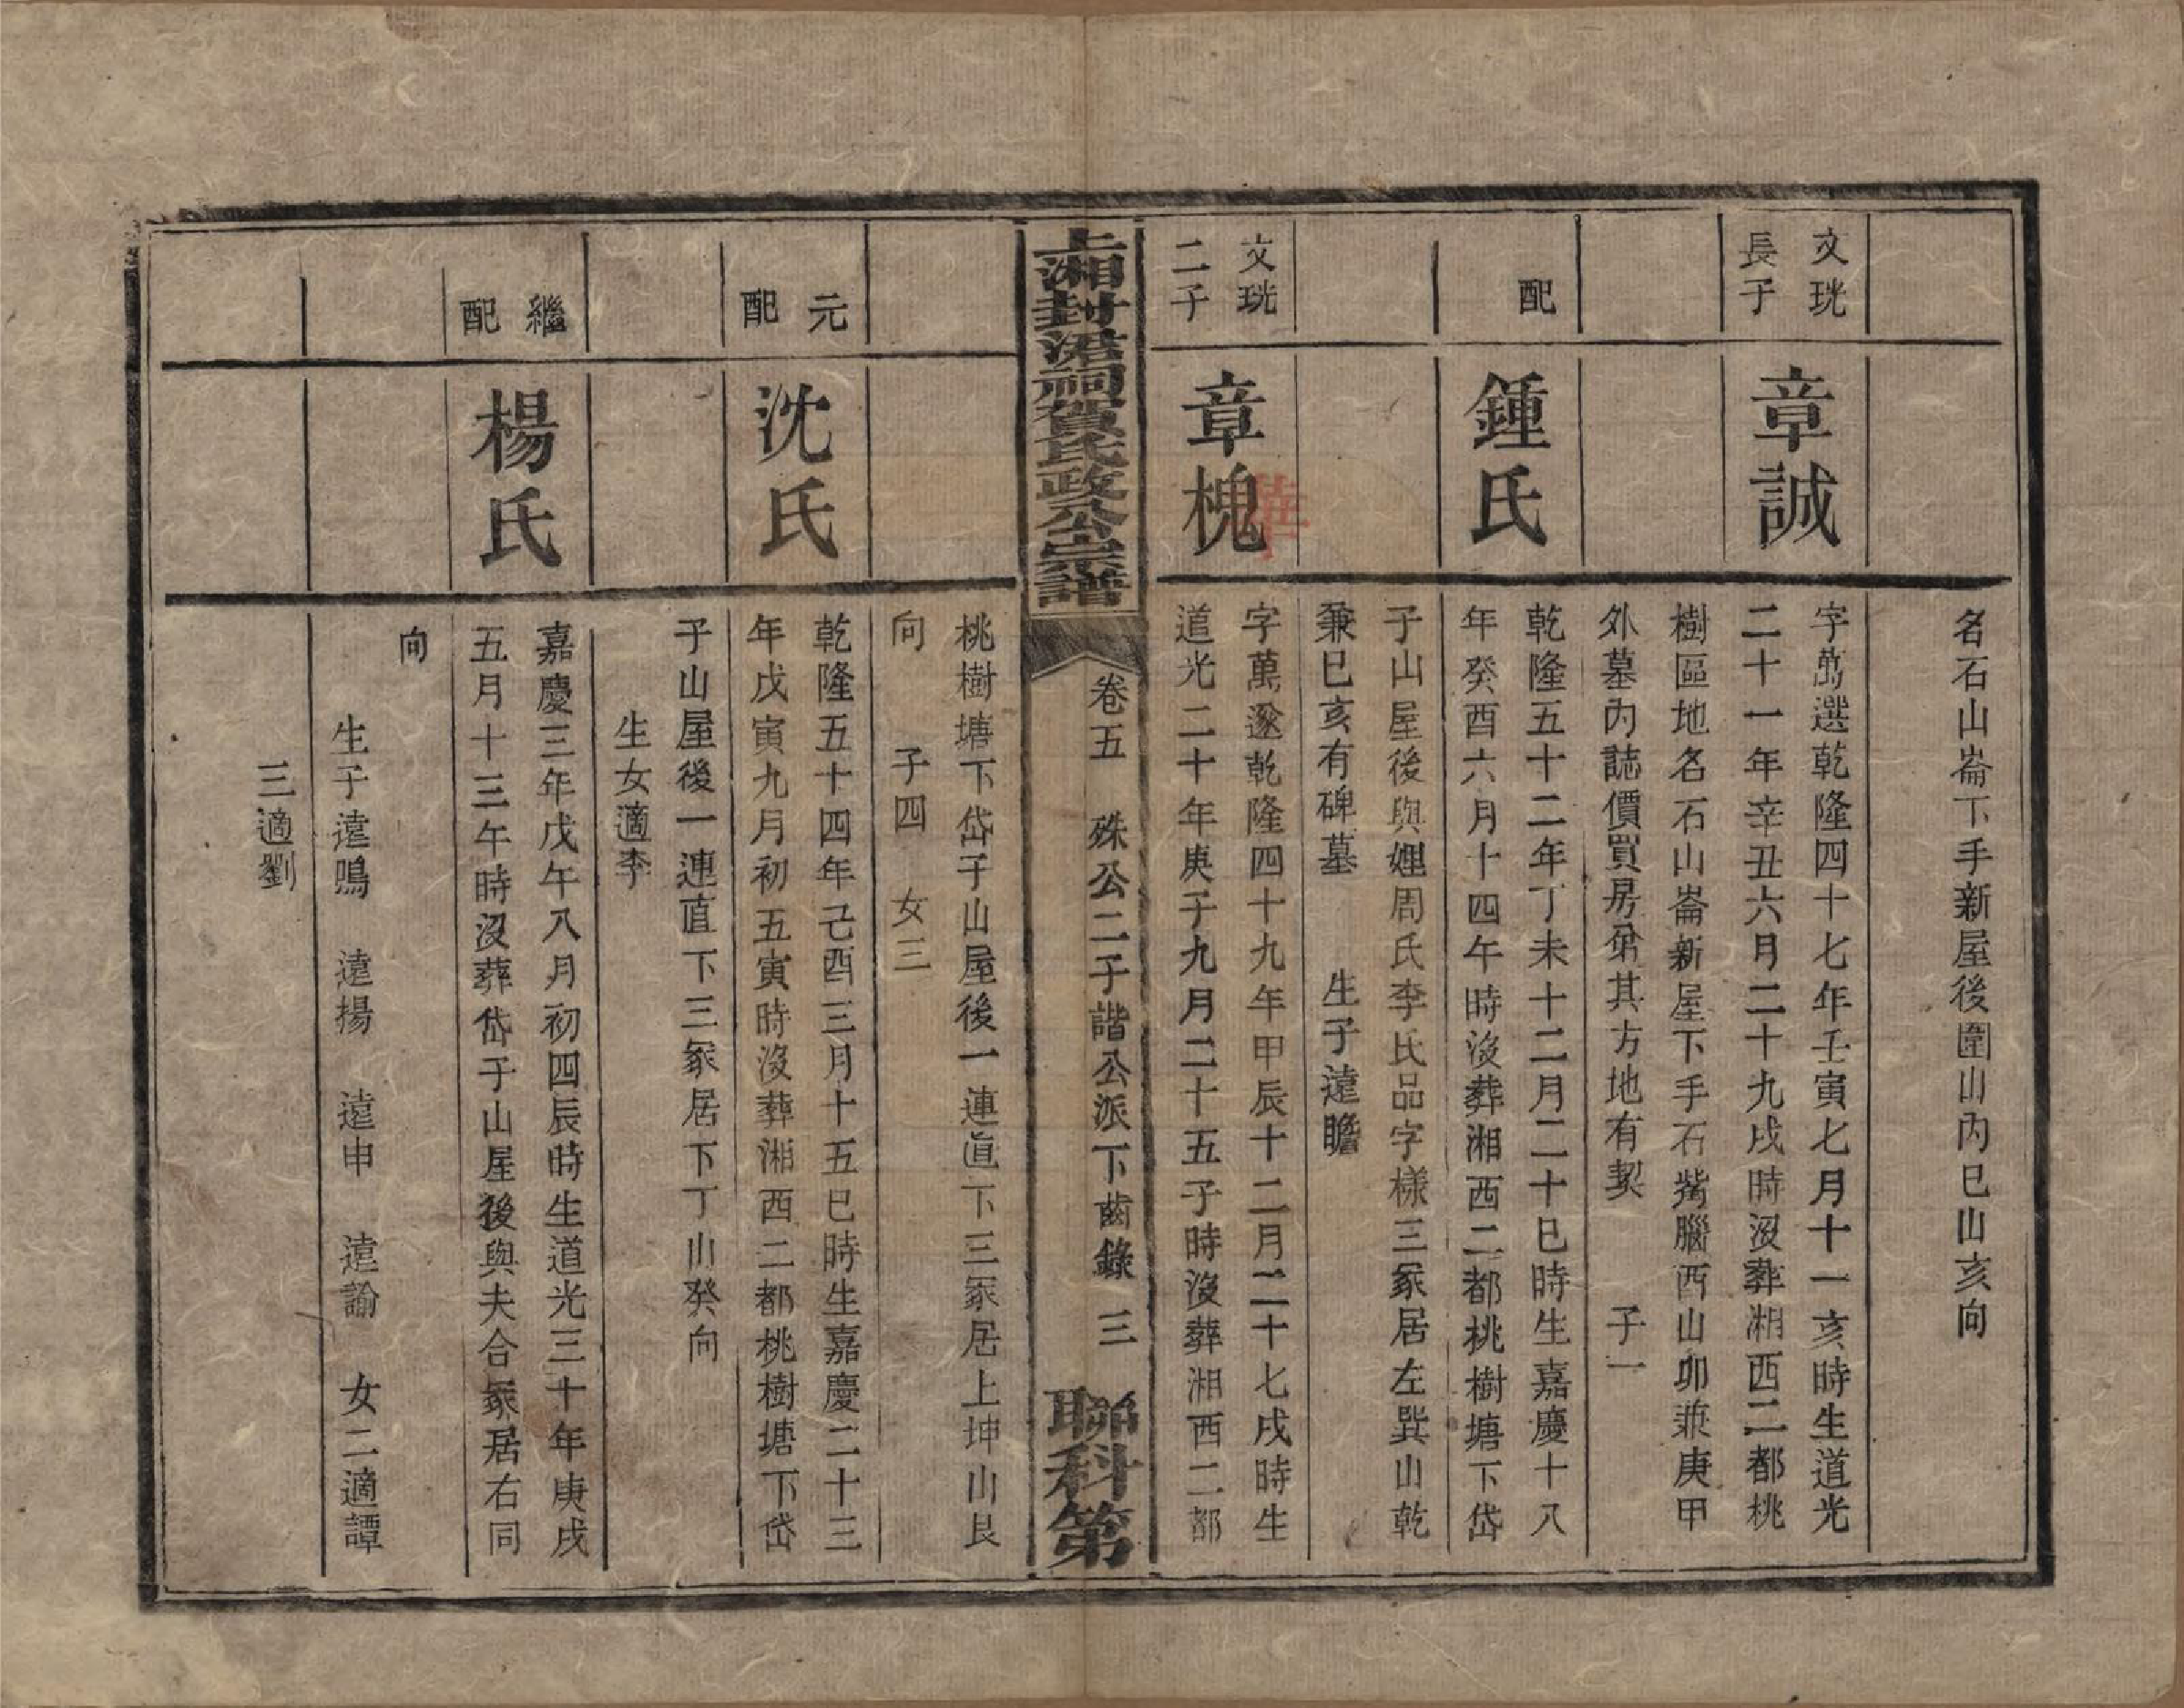 名石山崙下手新屋後園山內巳山亥向
文珖
長子
章誠
字萬選乾隆四十七年壬寅七月十一亥時生道光
二十一年辛丑六月二十九戌時沒葬湘西二都桃
樹區地名石山崙新屋下手石觜腦酉山卯兼庚甲
外墓內誌價買房弟其方地有契 子一
配
鍾氏
乾隆五十二年丁未十二月二十巳時生嘉慶十八
年癸酉六月十四午時沒葬湘西二都桃樹塘下岱
子山屋後與娌周氏李氏品字樣三冢居左巽山乾
兼巳亥有碑墓 生子遠瞻
文珖
二子
章槐
字萬邃乾隆四十九年甲辰十二月二十七戌時生
道光二十年庚子九月二十五子時沒葬湘西二都
上湘封港祠賀氏政公宗譜
卷五 殊公二子諧公派下齒錄 三
聯科第
桃樹塘下岱子山屋後一連直下三冢居上坤山艮
向 子四 女三
元
配
沈氏
乾隆五十四年己酉三月十五巳時生嘉慶二十三
年戊寅九月初五寅時沒葬湘西二都桃樹塘下岱
子山屋後一連直下三冢居下丁山癸向
生女適李
繼
配
楊氏
嘉慶三年戊午八月初四辰時生道光三十年庚戌
五月十三午時沒葬岱子山屋後與夫合冢居右同
向
生子遠鳴 遠揚 遠申 遠諭 女二適譚
三適劉